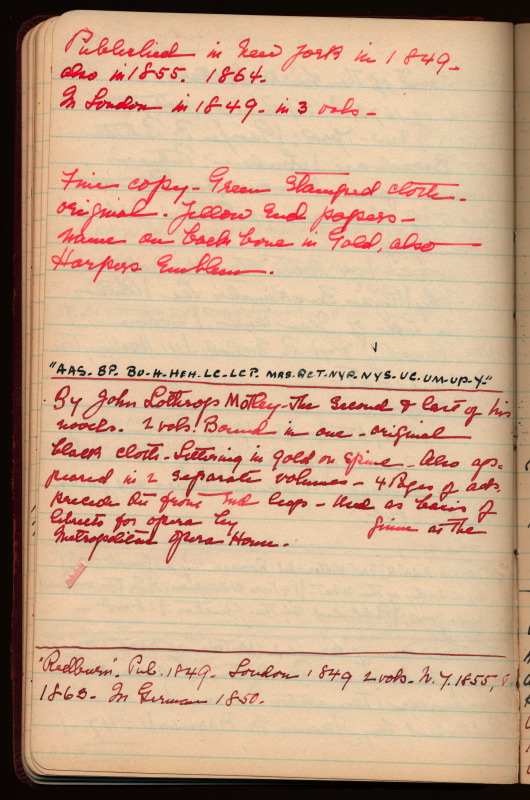 Published in New York in 1849-
also in 1855. 1864.
In London in 1849- in 3 vols-
Fine copy- Green Stamped cloth-
original. Yellow End papers-
name on back bone in Gold, also
Harpers Emblem.
"AAS. BP. BU-H-HEH-LC-LCP. MRS. RCT-NYP. NYS-UC. UM-UP-Y-"
By John Lothrop Motley-The Second & last of his
novels. 2 vols. Bound in one-original
black cloth-Lettering in gold on spine-Also ap-
peared in 2 separate volumes- 4 Pages of ads.
precede the front End leaf- Used as basis of
libretto for opera by given at the
Metropolitan Opera House.
"Redburn". Pub. 1849. London 1849 2 vols. N.Y. 1855,
1863. In German 1850.